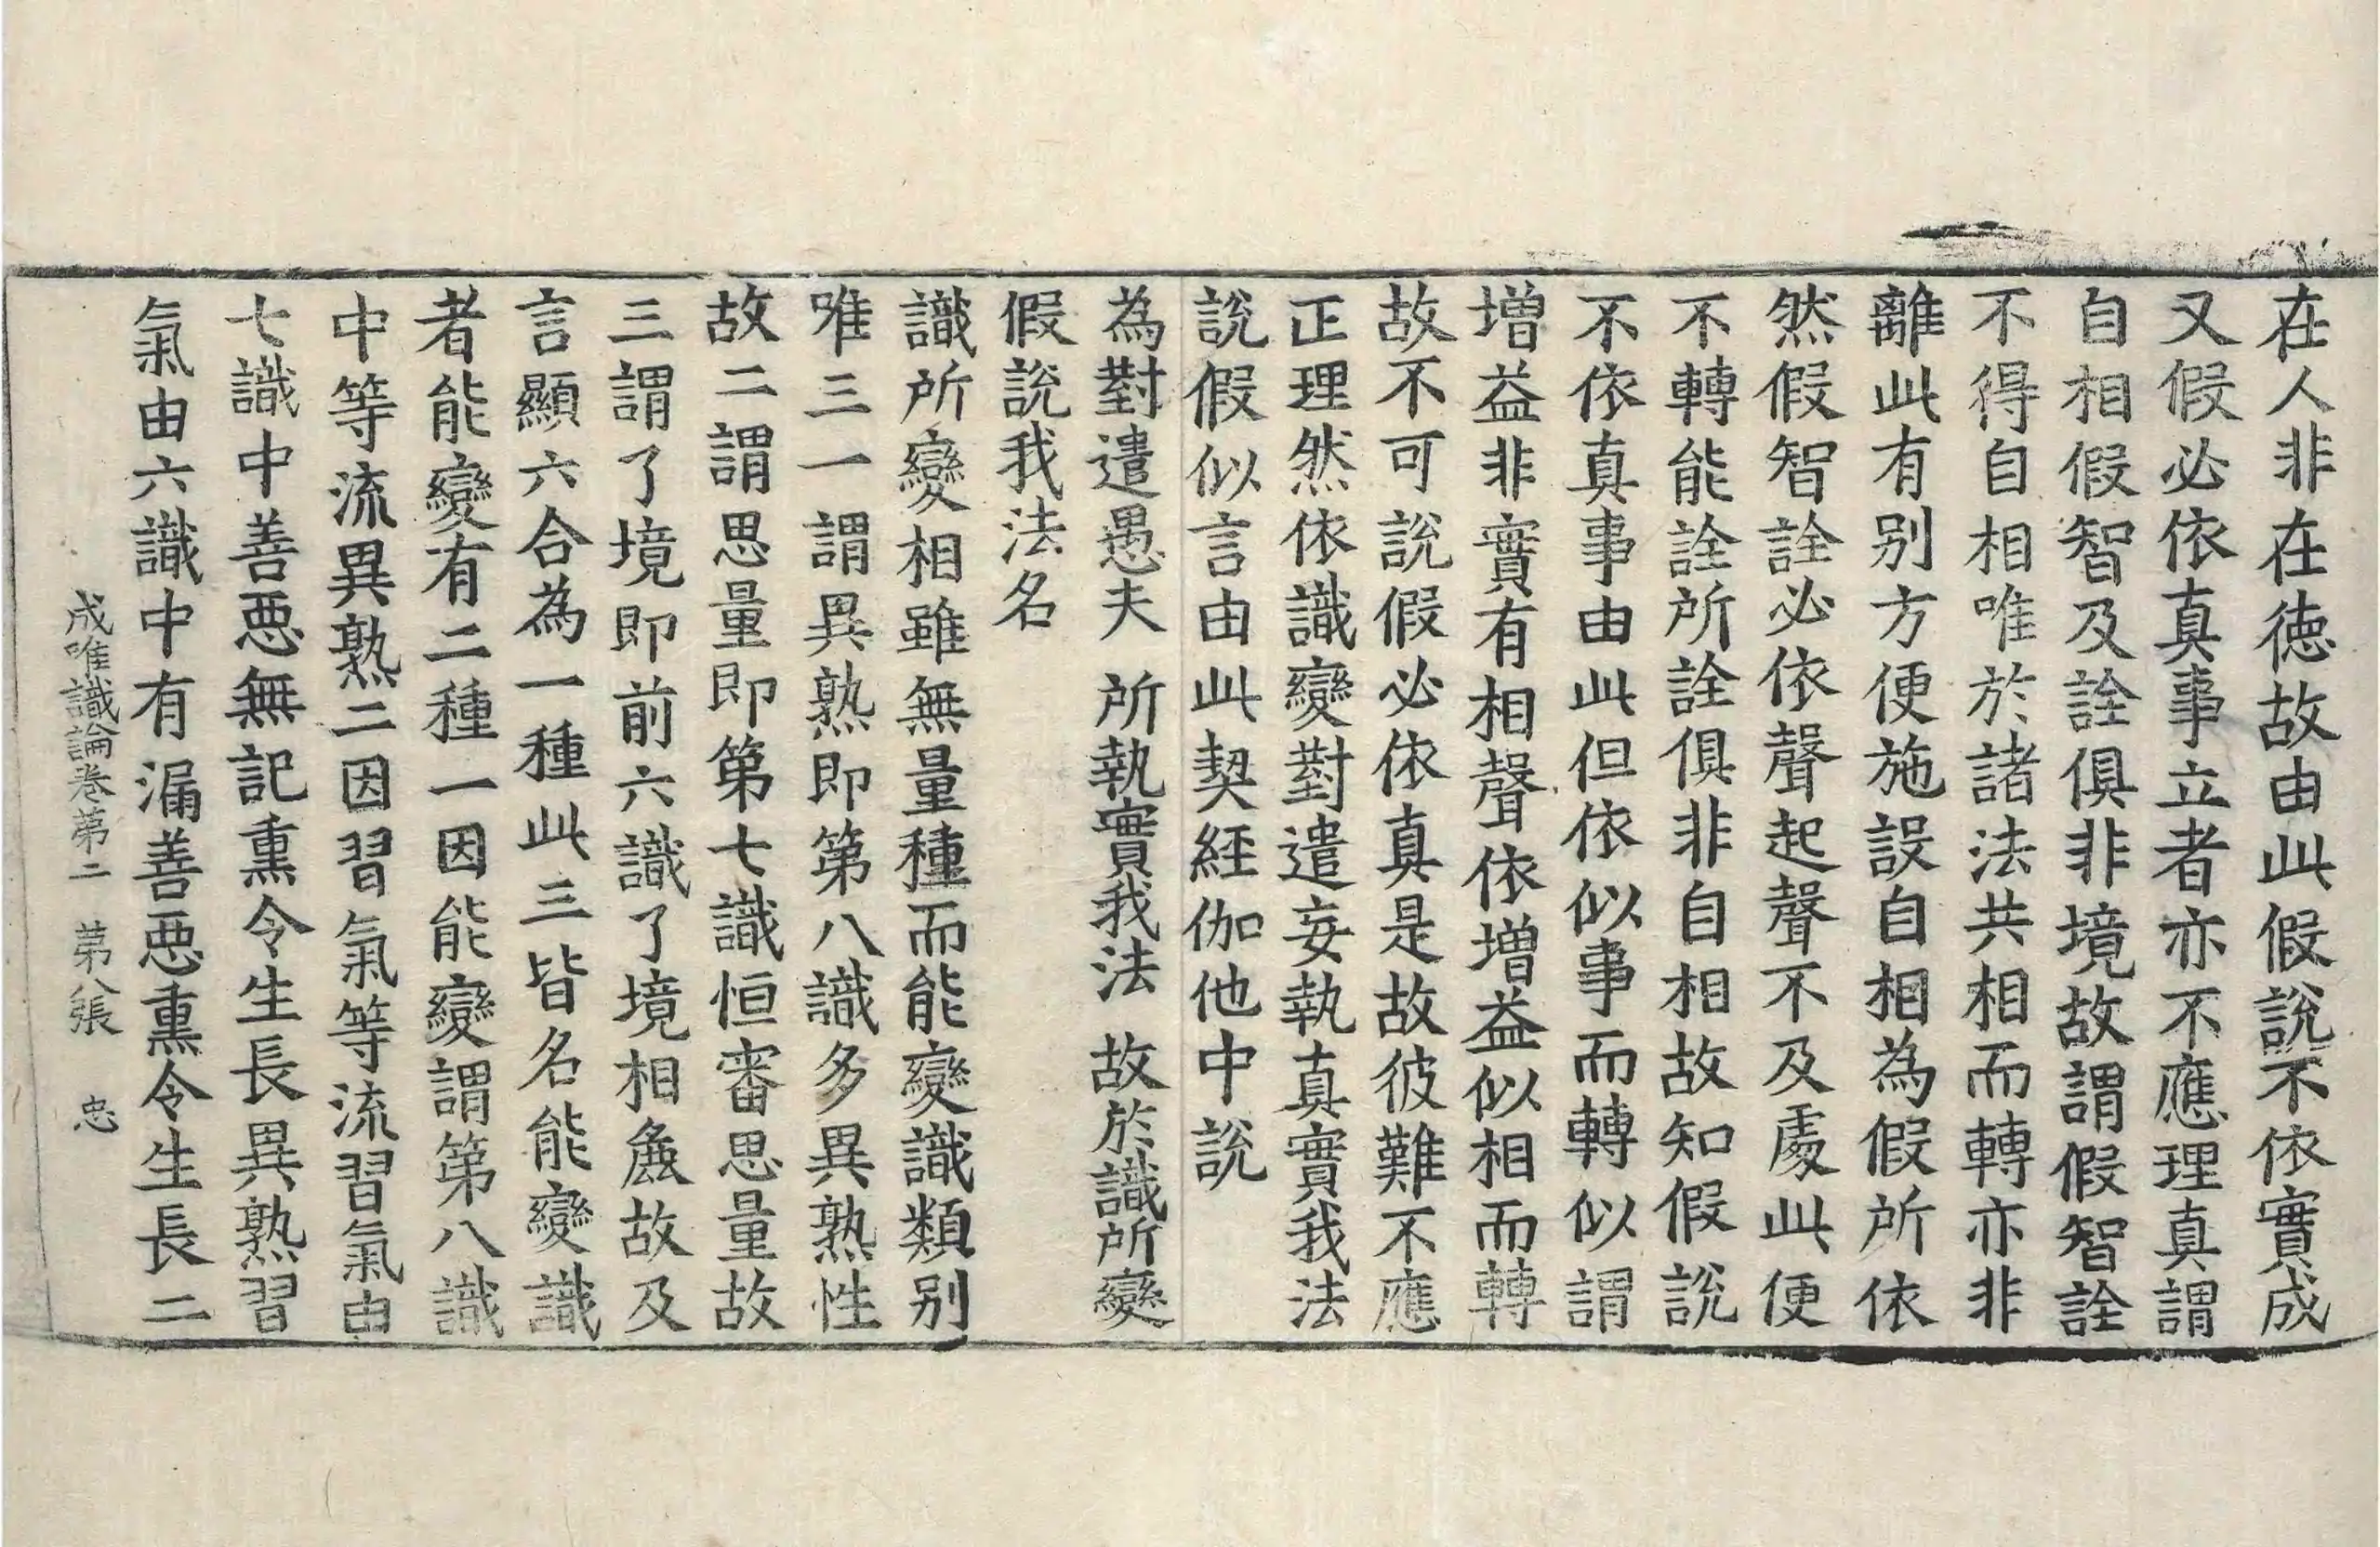 在人非在在徳故由此假說不依實成
又假必依真事立者亦不應理真謂
自相假智及詮俱非境故謂假智詮
不得自相唯於諸法共相而轉亦非
離此有别方便施設自相為假所依
然假智詮必依聲起聲不及處此便
不轉能詮所詮俱非自相故知假說
不依真事由此但依似事而轉似謂
増益非實有相聲依増益似相而轉
故不可說假必依真是故彼難不應
正理然依識變對遣妄執真實我法
說假似言由此契經伽他中說
為對遣愚夫 所執實我法 故於識所變
假說我法名
識所變相雖無量種而能變識類别
唯三一謂異熟即第八識多異熟性
故二謂思量即第七識恒審思量故
三謂了境即前六識了境相麁故及
言顯六合為一種此三皆名能變識
者能變有二種一因能變謂第八識
中等流異熟二因習氣等流習氣由
七識中善惡無記熏令生長異熟習
氣由六識中有漏善惡熏令生長二
成唯識論卷第二 第八張 忠